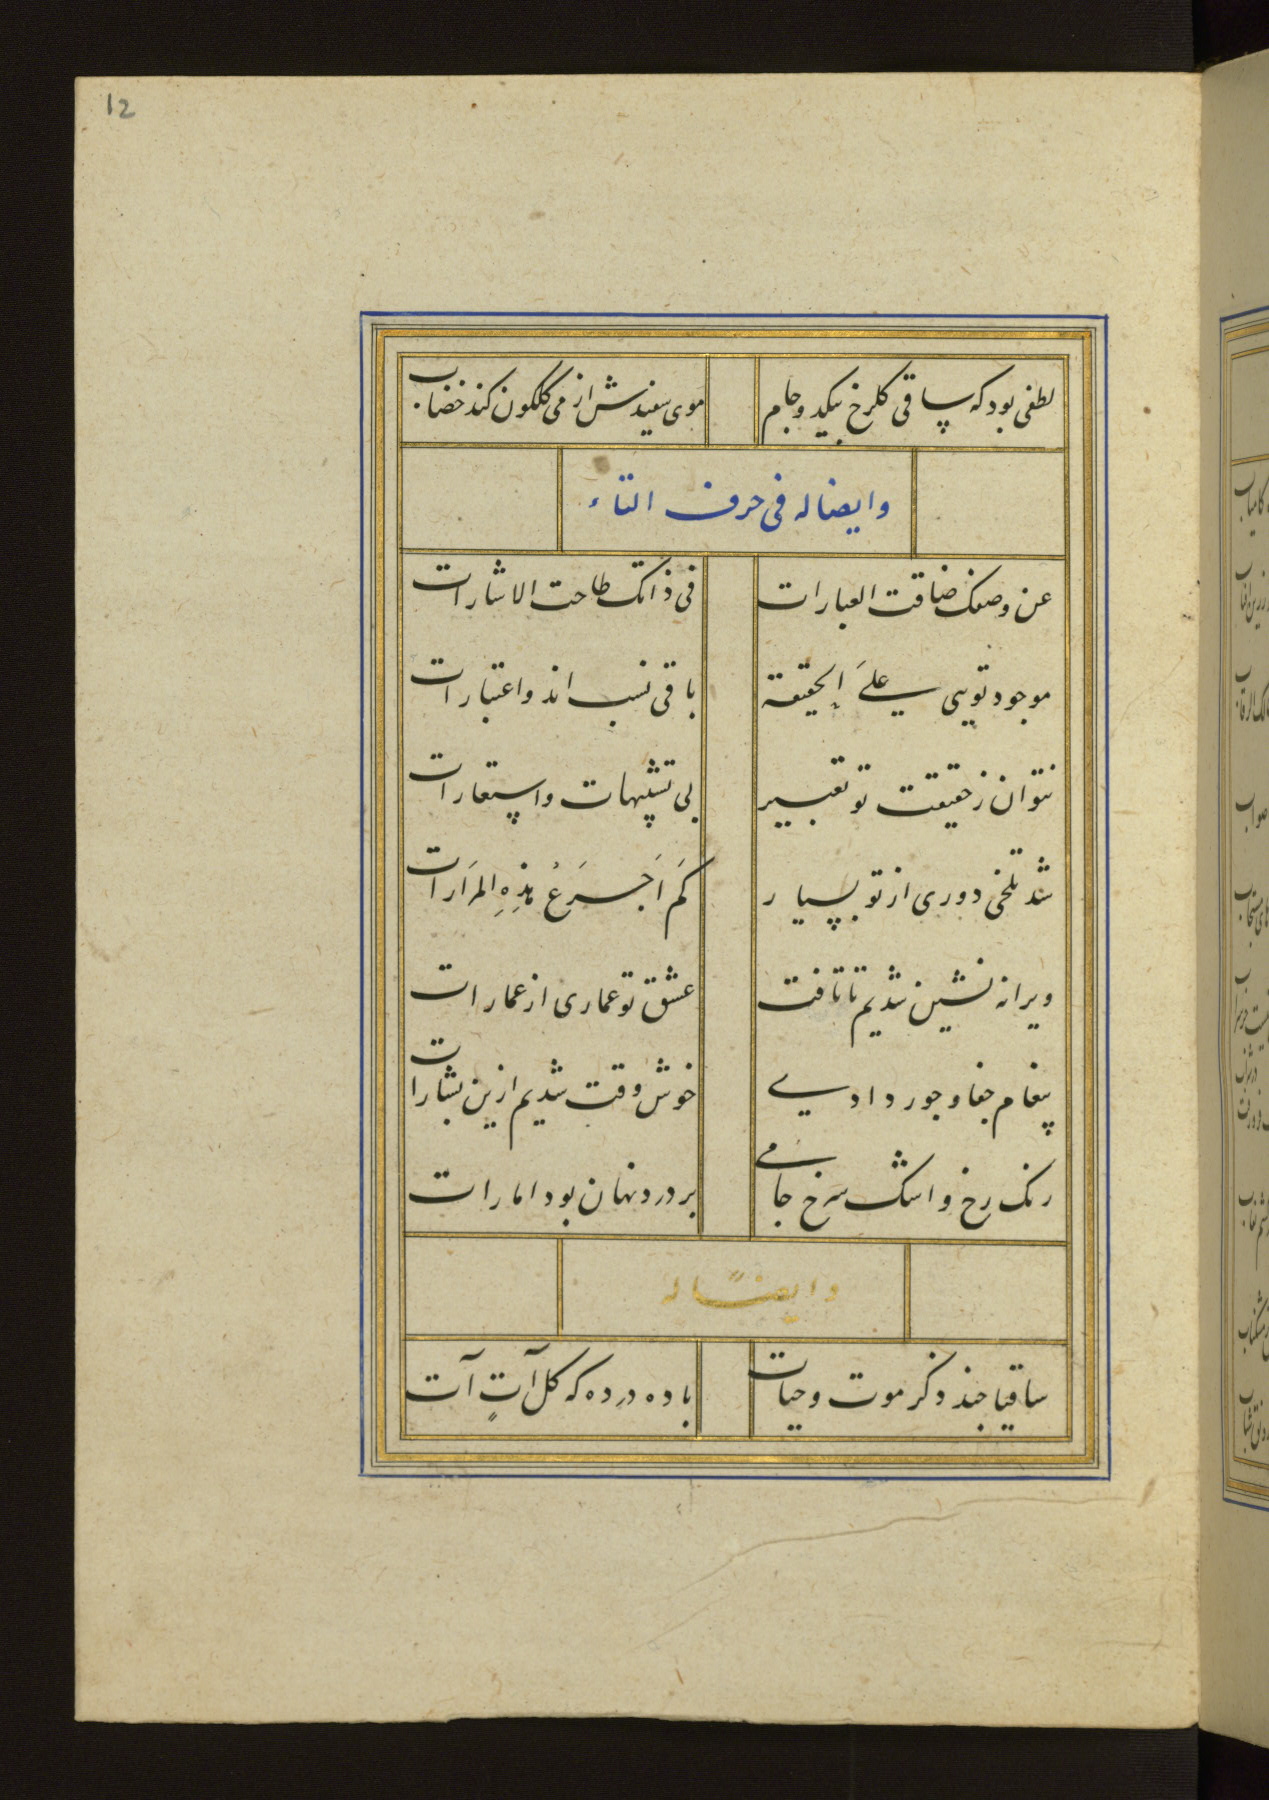 12
لطفی بود که ساقی گلرخ بیکد و جام
موی سفیدش از می گلگون کند خضاب
وایضا له فی حرف التاء
عن وصفک ضاقت العبارات
فی ذاتک طاحت الاشارات
موجود تویی علیَ الحقیقة
باقی نسب اند و اعتبارات
نتوان ز حقیقت تو تعبیر
بی تشبیهات و استعارات
شد تلخی دوری از تو بسیار
کَم اَجرَعُ هذِهِ المَرَارات
ویرانه نشین شدیم تا تافت
عشق تو عماری از عمارات
پیغام جفا و جور دادی
خوش وقت شدیم ازین بشارات
رنک رخ و اشک سرخ جامی
بر درد نهان بود امارات
وایضًا له
ساقیا چند ذکر موت و حیات
باده در ده که کل آتٍ آت